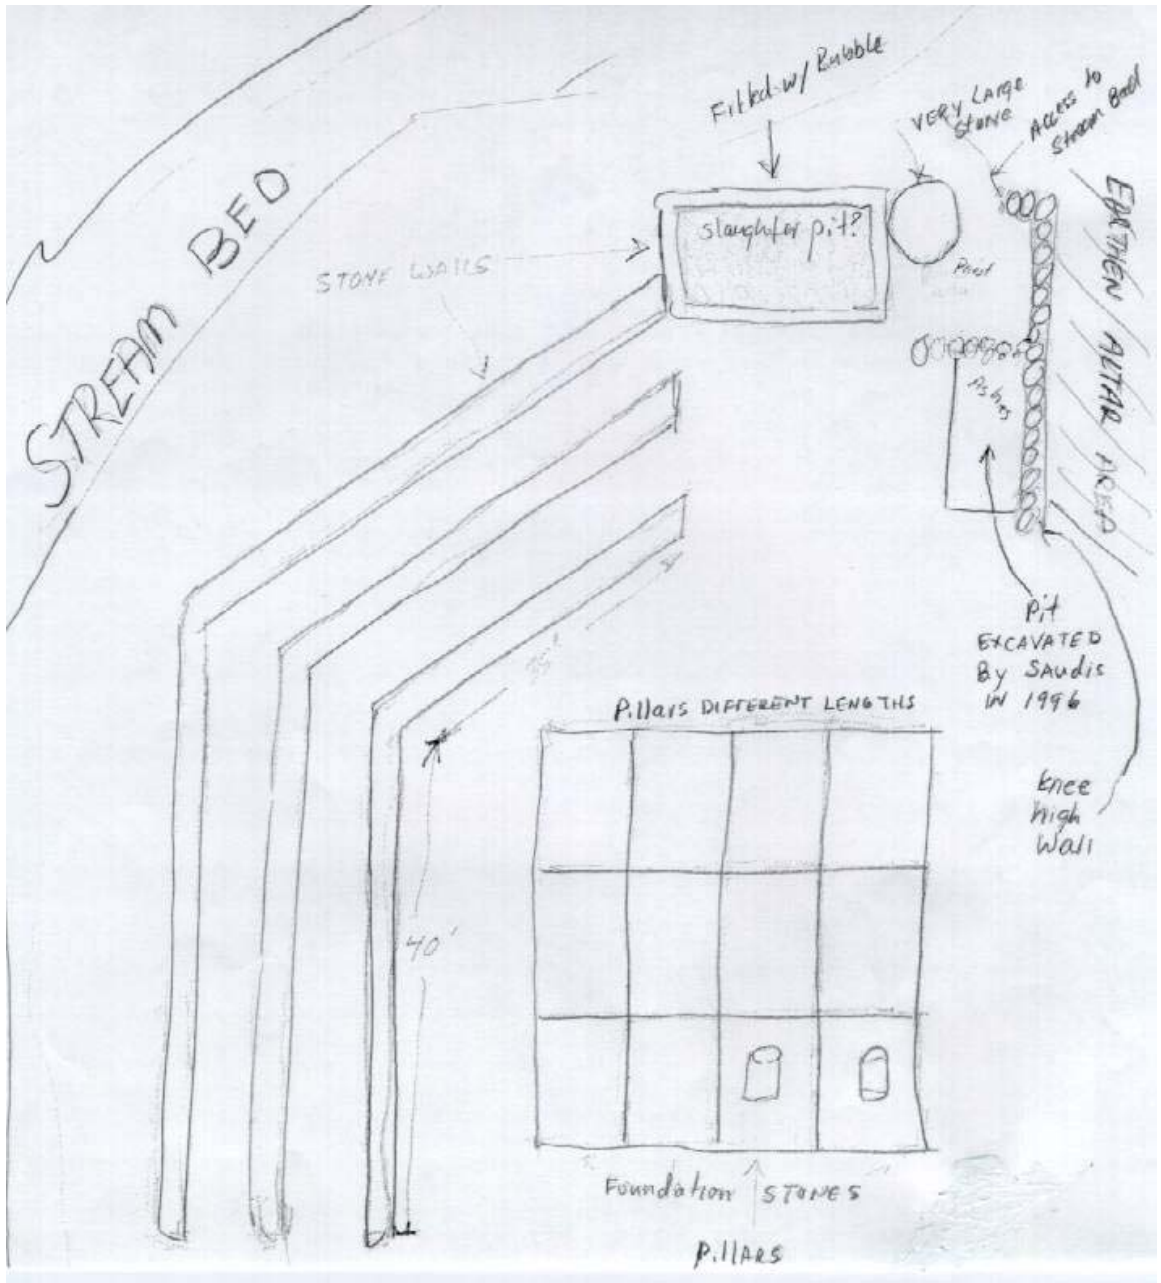 Filled w/ Rubble
VERY LARGE
STONE
Access to
Stream Bed
STREAM BED
STONE WALLS
slaughter pit?
EARTHEN ALTAR AREA
Ashes
Pit
EXCAVATED
By SAUDIS
IN 1996
Knee
High
Wall
Pillars DIFFERENT LENGTHS
40'
Foundation STONES
PillARS